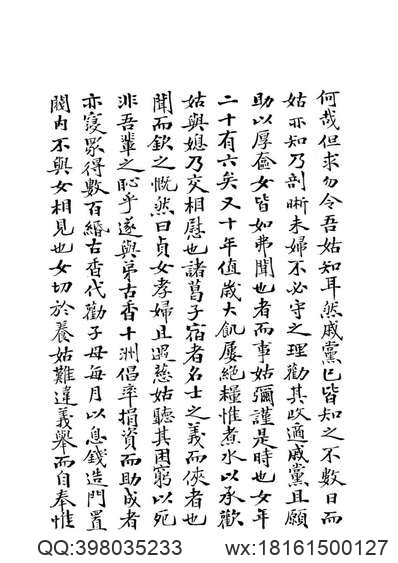 何哉但求勿令吾姑知耳然戚黨已皆知之不數日而
姑亦知乃剖晰未婦不必守之理勸其改適戚黨且願
助以厚奩女皆如弗聞也者而事姑彌謹是時也女年
二十有六矣又十年值歲大飢屢絕糧惟煮水以承歡
姑與媳乃交相慰也諸葛子宿者名士之義而俠者也
聞而欽之慨然曰貞女孝婦且遐慈姑聽其困窮以死
非吾輩之恥乎遂與弟古香十洲倡率捐資而助成者
亦寖眾得數百緡古香代勸子母每月以息錢造門置
閾內不與女相見也女切於養姑難違義舉而自奉惟
QQ:398035233 wx:18161500127